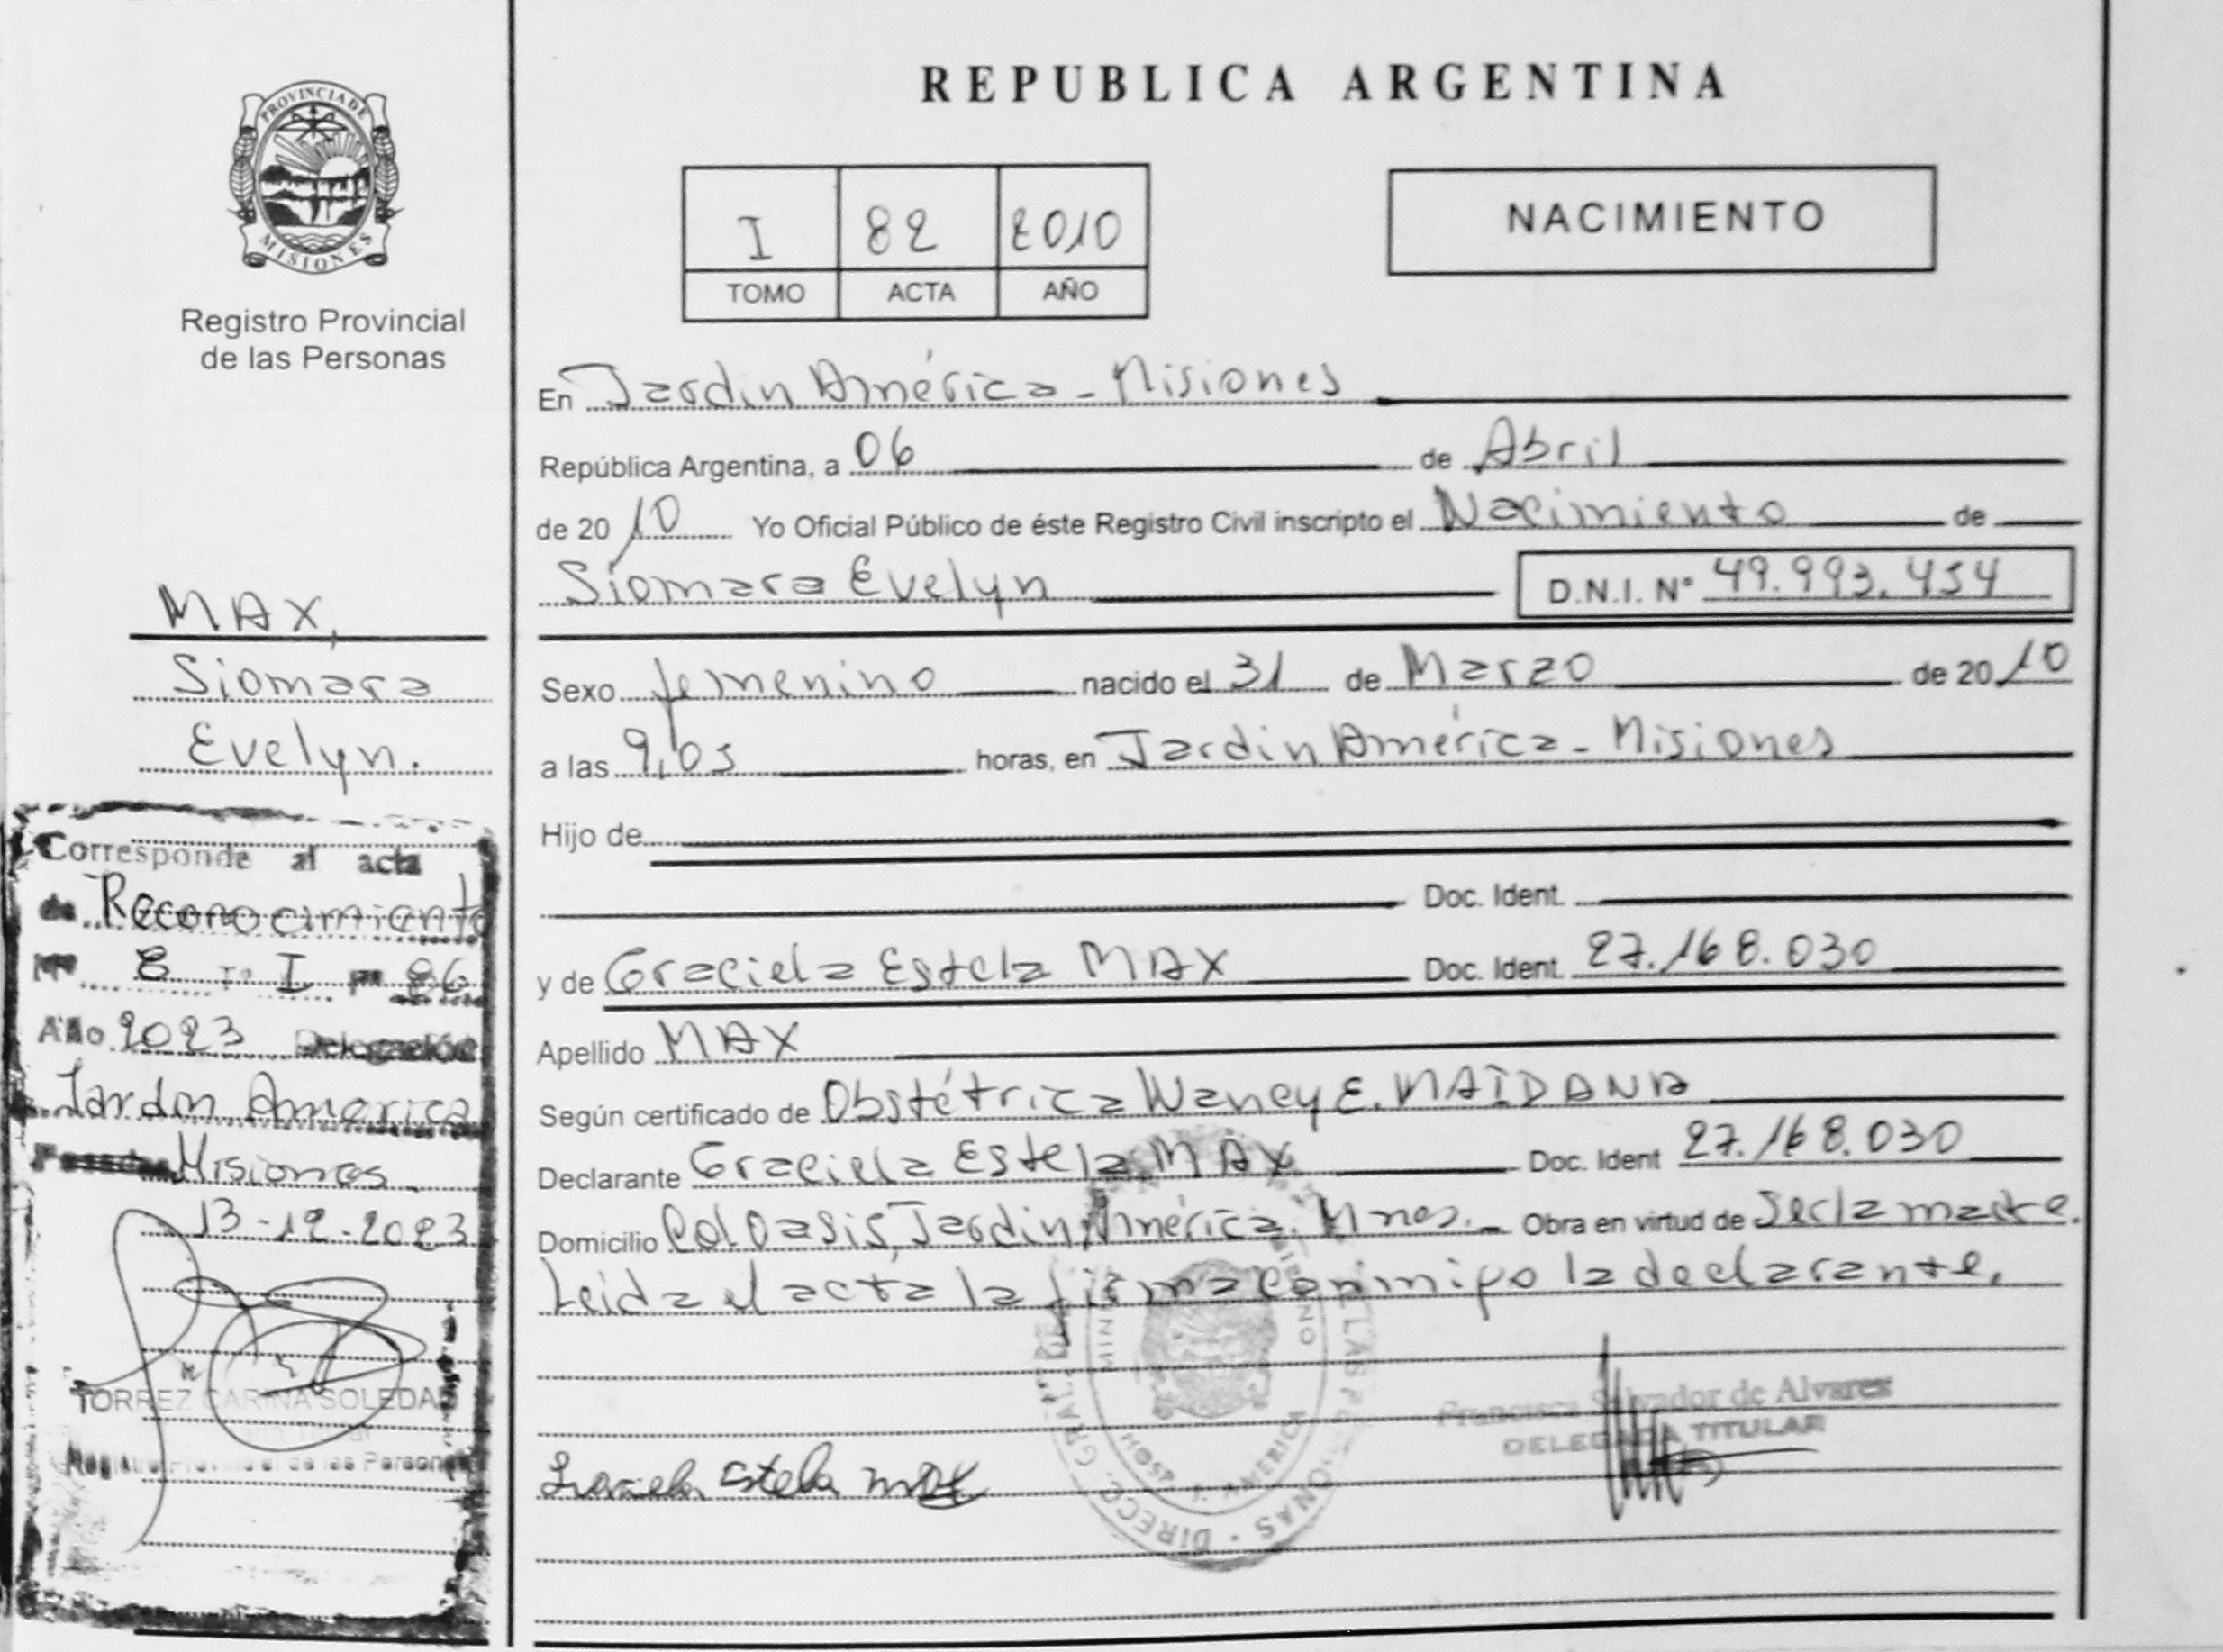 PROVINCIA DE
MISIONES
Registro Provincial
de las Personas
MAX,
Siomara
Evelyn.
Corresponde al acta
de Reconocimiento
Nº 8 Tº I Fº 86
Año 2023 Delegación
Jardin America
Posadas Misiones
13-12-2023
TORREZ CARINA SOLEDAD
Registro Provincial de las Personas
REPUBLICA ARGENTINA
I 82 2010
TOMO ACTA AÑO
NACIMIENTO
En Jardin América - Misiones
República Argentina, a 06 de Abril
de 2010 Yo Oficial Público de éste Registro Civil inscripto el Nacimiento de
Siomara Evelyn D.N.I. Nº 49.993.454
Sexo femenino nacido el 31 de Marzo de 2010
a las 9,05 horas, en Jardin América - Misiones
Hijo de
Doc. Ident.
y de Graciela Estela MAX Doc. Ident. 27.168.030
Apellido MAX
Según certificado de Obstétrica Nancy E. MAIDANA
Declarante Graciela Estela MAX Doc. Ident 27.168.030
Domicilio Col Oasis, Jardin América. Mnes. Obra en virtud de Ser la madre.
Leida el acta la firma conmigo la declarante.
Francisca Salvador de Alvarez
DELEGADA TITULAR
Graciela Estela MAX
HOSP. J. AMERICA
DIRECC. GRAL.